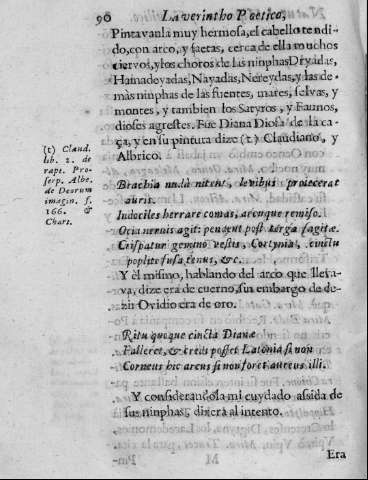 90 Laverintho Poetico,
Pintavanla muy hermosa, el cabello tendi-
do, con arco, y saetas, cerca de ella muchos
ciervos, y los choros de las ninphas Dryadas,
Hamadeyadas, Nayadas, Nereydas, y las de-
màs ninphas de las fuentes, mares, selvas, y
montes, y tambien los Satyros, y Faunos,
dioses agrestes. Fue Diana Diosa de la ca-
ça, y en su pintura dize (t) Claudiano, y
Albrico.
(t) Claud.
lib. 2. de
rapt. Pro-
serp. Albe.
de Deorum
imagin. f.
166. &
Chart.
Brachia nuda nitent, levibus proiecerat
auris.
Indociles herrare comas, arcuque remiso.
Ocia nervus agit: pendent post terga sagitæ.
Crispatur gemino vestis, Cortynia, cinctu
poplite fusa tenus, &c.
Y èl mismo, hablando del arco que lleva-
va, dize era de cuerno, sin embargo de de-
zir Ovidio era de oro.
Ritu quoque cincta Dianæ
Falleret, & credi posset Latonia si non
Corneus hic arcus si non foret aureus illi.
Y considerandola mi cuydado assida de
sus ninphas, dixera al intento.
Era